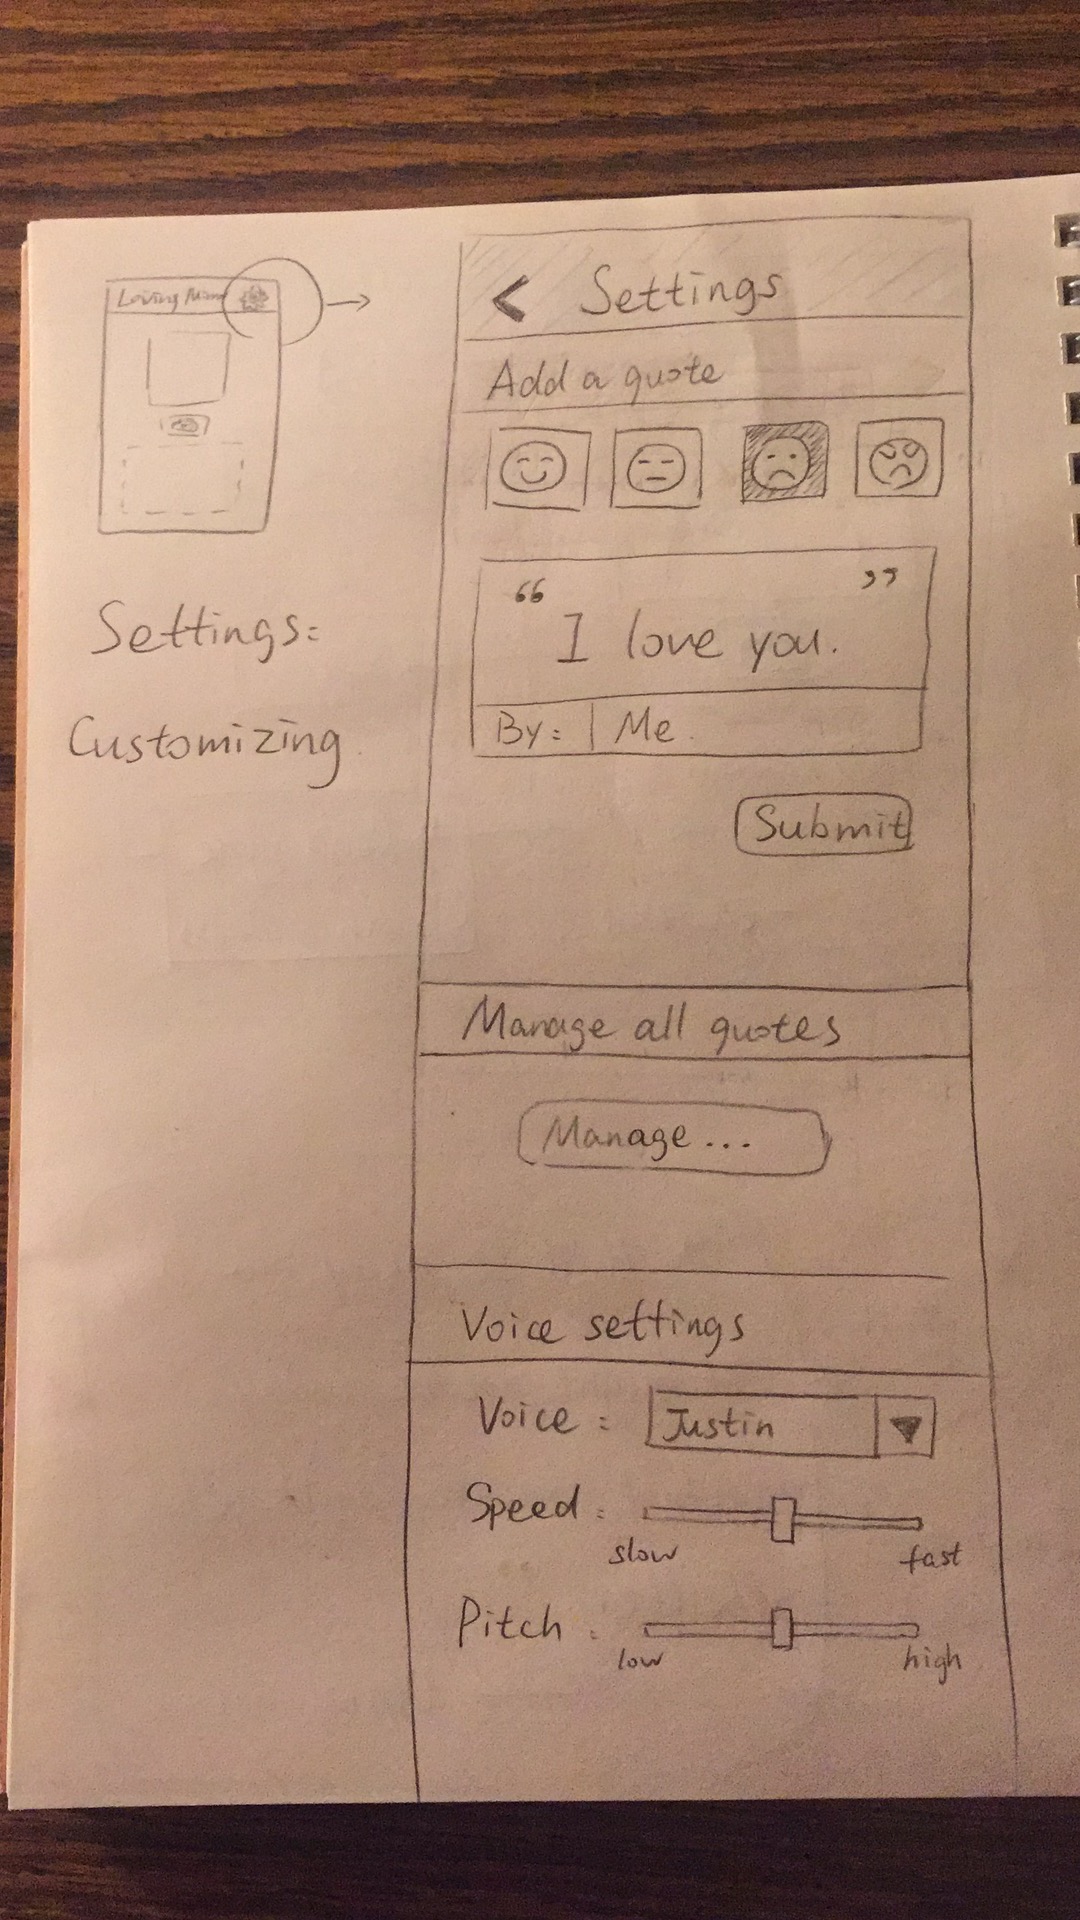 Loving
Settings:
Customizing
< Settings
Add a quote
“ ”
I love you.
By: Me
Submit
Manage all quotes
Manage...
Voice settings
Voice: Justin
Speed:
slow fast
Pitch:
low high